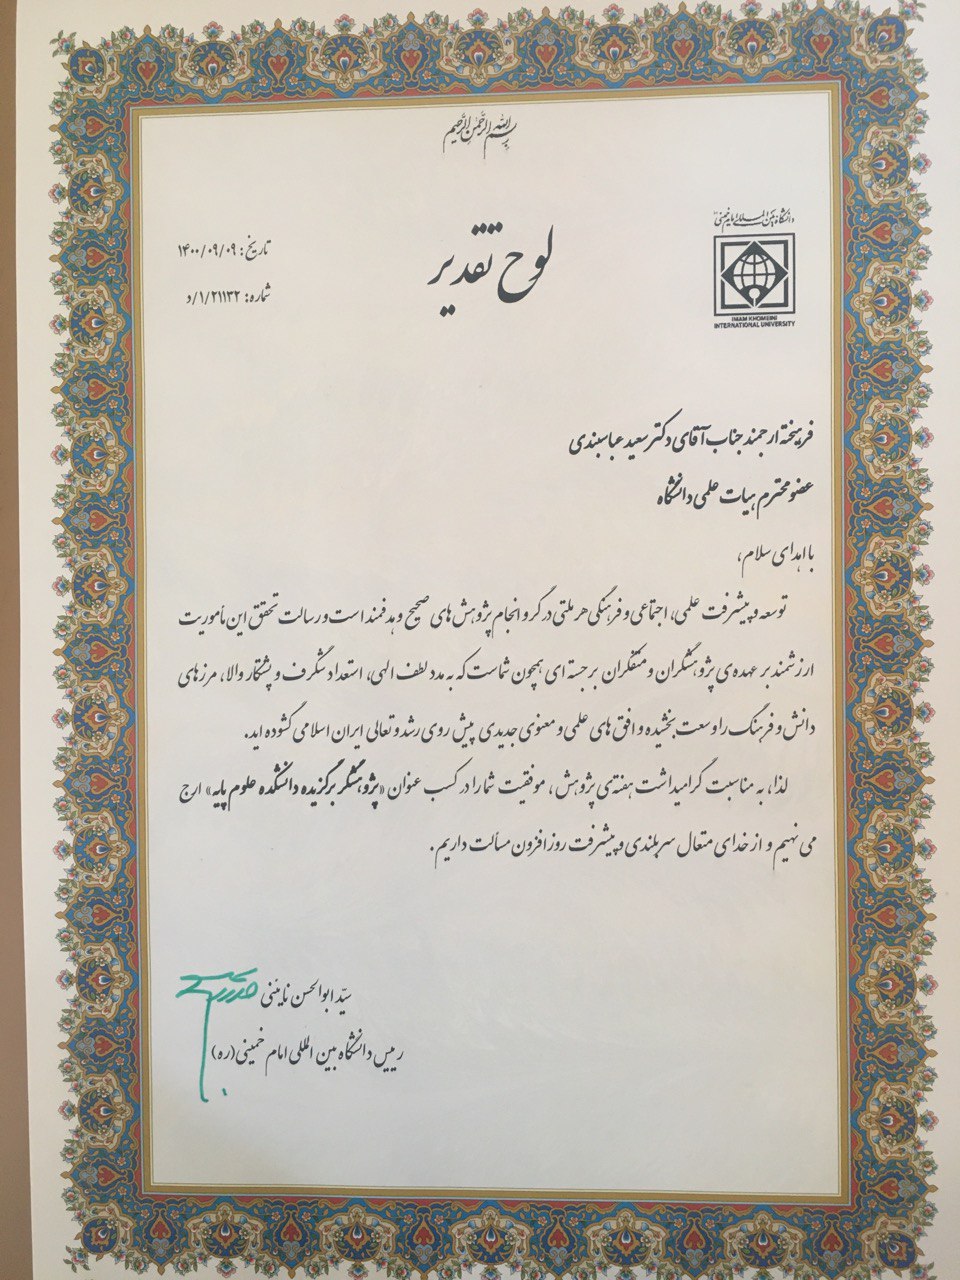 بسم الله الرحمن الرحیم
دانشگاه بین المللی امام خمینی
IMAM KHOMEINI
INTERNATIONAL UNIVERSITY
لوح تقدیر
تاریخ: ۱۴۰۰/۰۹/۰۹
شماره: ۲۱۱۳۲/۱/د
فرهیخته ارجمند جناب آقای دکتر سعید عباسبندی
عضو محترم هیات علمی دانشگاه
با اهدای سلام،
توسعه و پیشرفت علمی، اجتماعی و فرهنگی هر ملتی در گرو انجام پژوهش های صحیح و هدفمند است و رسالت تحقق این مأموریت
ارزشمند بر عهده‌ی پژوهشگران و متفکران برجسته ای همچون شماست که به مدد لطف الهی، استعداد شگرف و پشتکار والا، مرزهای
دانش و فرهنگ را وسعت بخشیده و افق های علمی و معنوی جدیدی پیش روی رشد و تعالی ایران اسلامی گشوده اید.
لذا، به مناسبت گرامیداشت هفته‌ی پژوهش، موفقیت شما را در کسب عنوان «پژوهشگر برگزیده دانشکده علوم پایه» ارج
می نهیم و از خدای متعال سربلندی و پیشرفت روزافزون مسألت داریم.
سیّد ابوالحسن نایئنی
رییس دانشگاه بین المللی امام خمینی(ره)